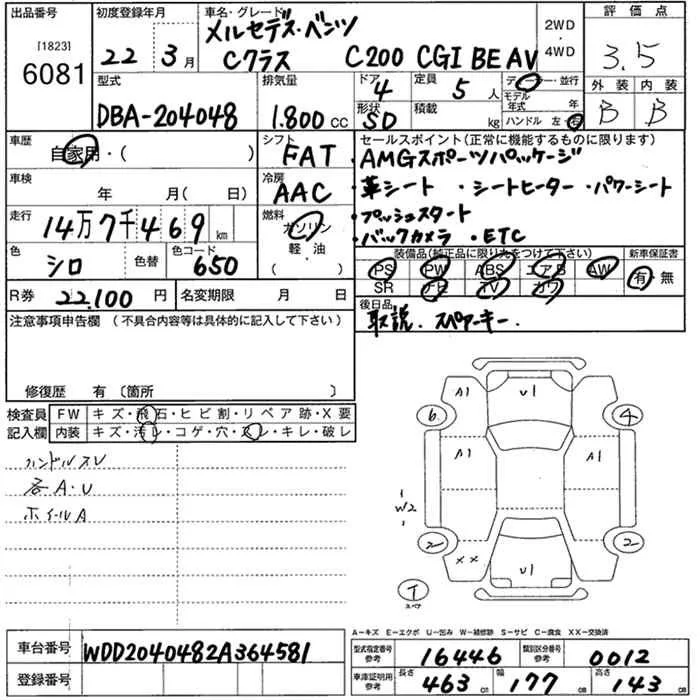 出品番号 [1823] 6081
初度登録年月 22年 3月
車名・グレード
メルセデス・ベンツ
Cクラス C200 CGI BE AV
2WD・4WD
評価点 3.5
型式 DBA-204048
排気量 1.800 CC
ドア 4
定員 5人
形状 SD
積載 kg
ディーラー・並行
モデル年式 年
ハンドル 左・右
外装 B
内装 B
車歴 自家用・( )
シフト FAT
セールスポイント(正常に機能するものに限ります)
・AMGスポーツパッケージ
・革シート ・シートヒーター ・パワーシート
・プッシュスタート
・バックカメラ ・ETC
車検 年 月( 日)
冷房 AAC
走行 14万7千469 km
燃料 ガソリン
軽・油
( )
色 シロ
色替
色コード 650
装備品(純正品に限り丸をつけて下さい)
PS PW ABS エアB AW
SR ナビ TV カワ
新車保証書 有 無
R券 22.100 円
名変期限 月 日
後日品
取説. スペアーキー.
注意事項申告欄 (不具合内容等は具体的に記入して下さい)
修復歴 有 〔箇所 〕
検査員記入欄
FW キズ・飛石・ヒビ割・リペア跡・X要
内装 キズ・汚レ・コゲ・穴・スレ・キレ・破レ
ハンドルスレ
各A・U
ホイールA
A1 U1
6 4
A1 A1
W2
2 2
XX U1
T
スペア
A-キズ E-エクボ U-凹み W-補修跡 S-サビ C-腐食 XX-交換済
車台番号 WDD2040482A364581
登録番号
型式指定番号 参考 16446
類別区分番号 参考 0012
車庫証明用 参考
長さ 463 cm
幅 177 cm
高さ 143 cm